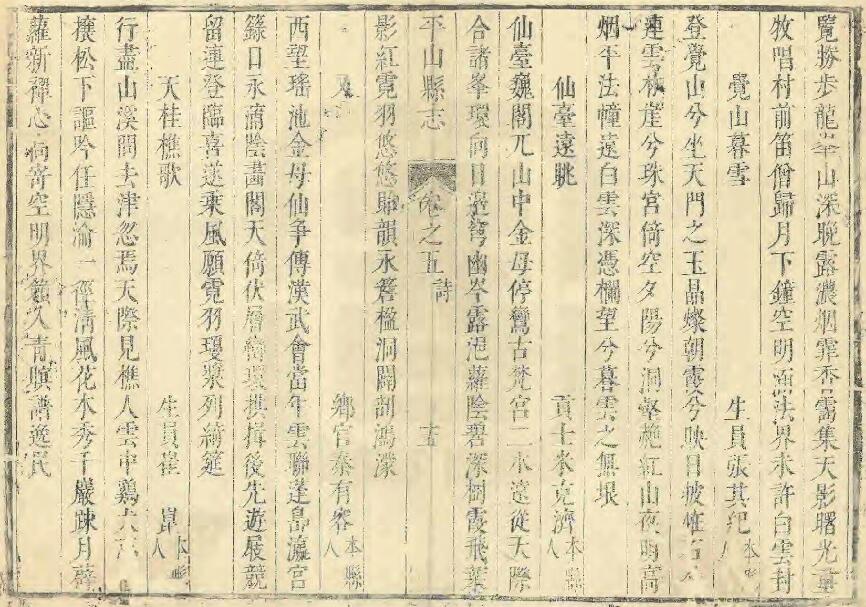 覽勝步龍宮山深晚露濃烟霏香靄集天影曙光重
牧唱村前笛僧歸月下鐘空明頑法界未許白雲封
覺山暮雪 生員張其紀本縣人
登覺山兮坐天門之玉晶燦朝霞兮映日披帷
連雲棟崖兮珠宮倚空夕陽兮洞壑艷紅山夜明高
烟平法幢遠白雲深憑欄望兮暮雲之無垠
仙臺遠眺 貢士米克濟本縣人
仙臺巍閣兀山中金母停鸞古梵宮二水遠從天際
合諸峯環向日邊穹幽岑露浥蘿陰碧深樹霞飛葉
平山縣志 卷之五 詩 十五
影紅霓羽悠悠賜韻永簷楹洞闢剖鴻濛
又 鄉官秦有容本縣人
西望瑤池金母仙爭傳漢武會當年雲聯蓬島瀛宮
籙日永蒲陰畫閣天倚伏層巒環拱揖後先遊展競
留連登臨喜遂乘風願霓羽瓊漿列綺筵
天桂樵歌 生員崔嵂本縣人
行盡山溪問去津忽焉天際見樵人雲中鷄犬
松下謳吟任隱淪一徑清風花木秀千巖疎月薜
蘿新禪心尚寄空明界籟入青冥譜逸民